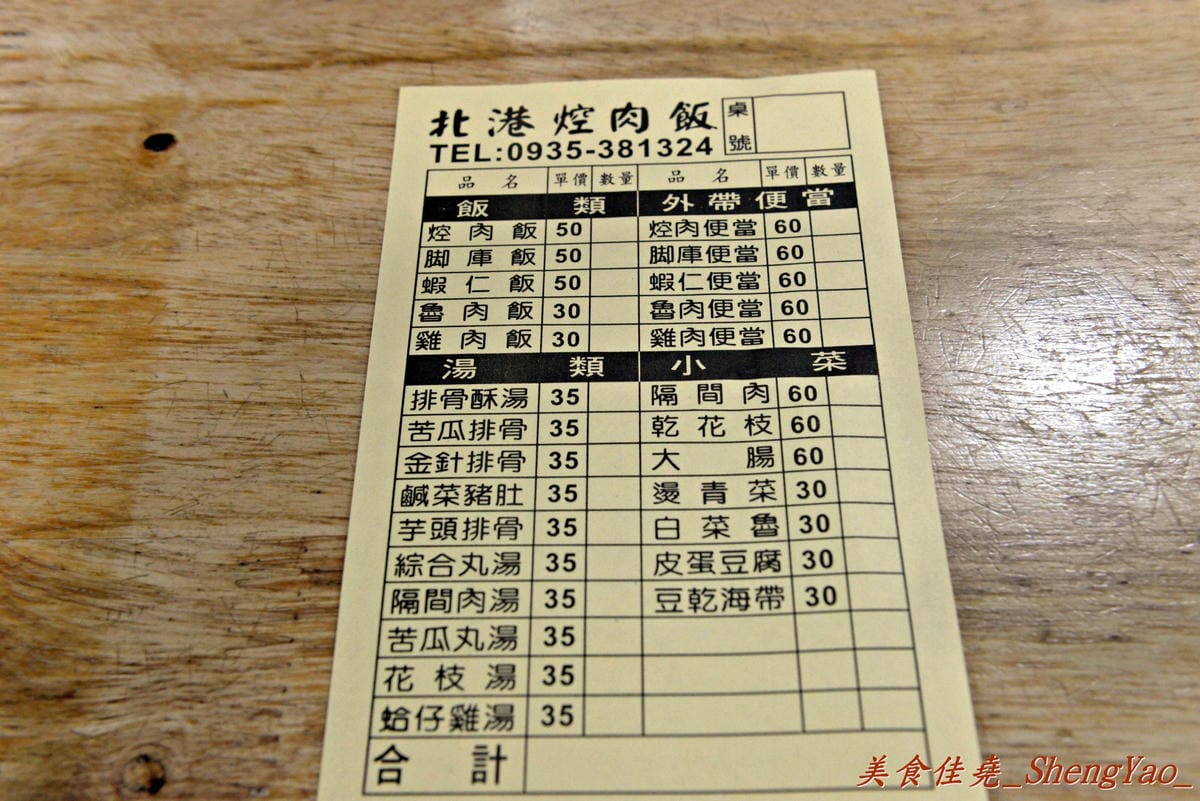 北港焢肉飯 桌號
TEL:0935-381324
品名 單價 數量 品名 單價 數量
飯類 外帶便當
焢肉飯 50 焢肉便當 60
脚庫飯 50 脚庫便當 60
蝦仁飯 50 蝦仁便當 60
魯肉飯 30 魯肉便當 60
雞肉飯 30 雞肉便當 60
湯類 小菜
排骨酥湯 35 隔間肉 60
苦瓜排骨 35 乾花枝 60
金針排骨 35 大腸 60
鹹菜豬肚 35 燙青菜 30
芋頭排骨 35 白菜魯 30
綜合丸湯 35 皮蛋豆腐 30
隔間肉湯 35 豆乾海帶 30
苦瓜丸湯 35
花枝湯 35
蛤仔雞湯 35
合計
美食佳堯_ShengYao_